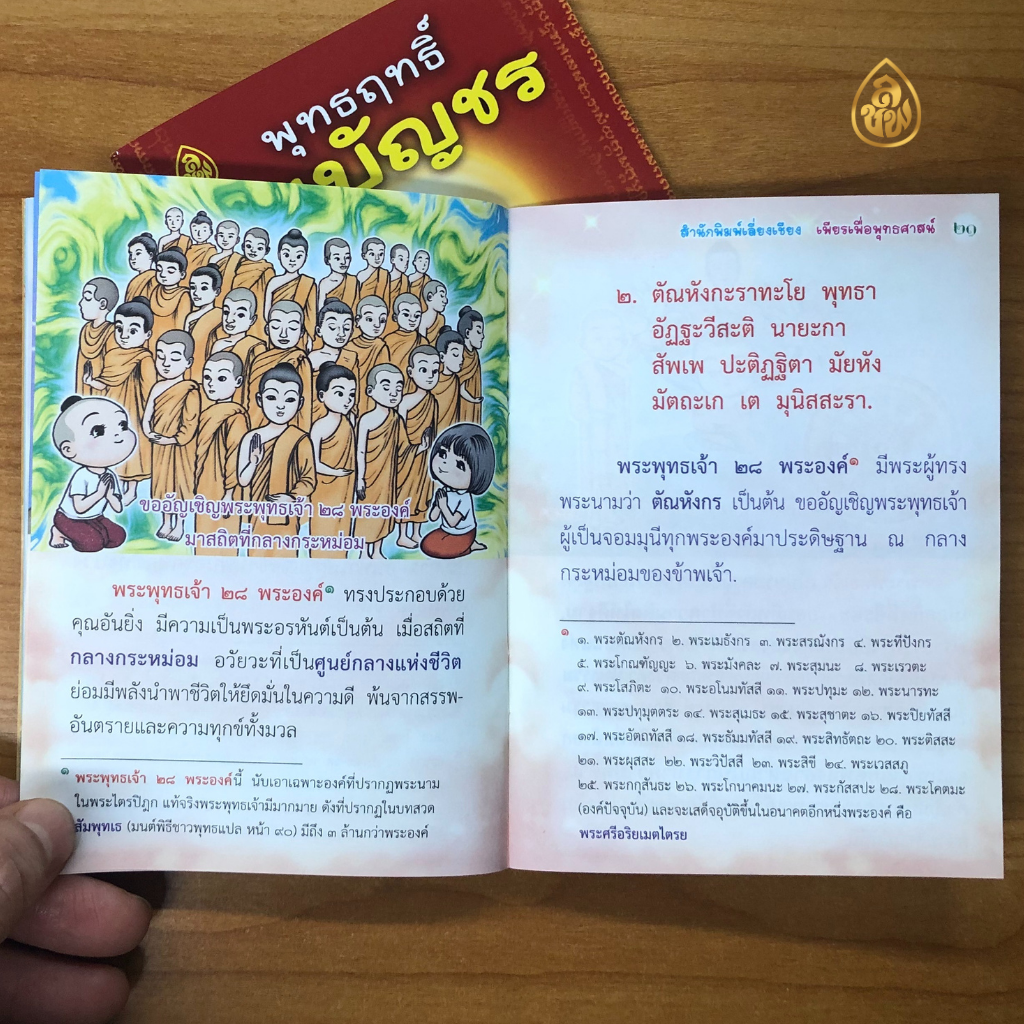 พุทธฤทธิ์
บัญชร
ลิ
ชพ
ขออัญเชิญพระพุทธเจ้า ๒๘ พระองค์
มาสถิตที่กลางกระหม่อม
พระพุทธเจ้า ๒๘ พระองค์๑ ทรงประกอบด้วย
คุณอันยิ่ง มีความเป็นพระอรหันต์เป็นต้น เมื่อสถิตที่
กลางกระหม่อม อวัยวะที่เป็นศูนย์กลางแห่งชีวิต
ย่อมมีพลังนำพาชีวิตให้ยึดมั่นในความดี พ้นจากสรรพ-
อันตรายและความทุกข์ทั้งมวล
๑ พระพุทธเจ้า ๒๘ พระองค์นี้ นับเอาเฉพาะองค์ที่ปรากฏพระนาม
ในพระไตรปิฎก แท้จริงพระพุทธเจ้ามีมากมาย ดังที่ปรากฏในบทสวด
สัมพุทเธ (มนต์พิธีชาวพุทธแปล หน้า ๙๐) มีถึง ๓ ล้านกว่าพระองค์
สำนักพิมพ์เลี่ยงเชียง เพียรเพื่อพุทธศาสน์ ๒๑
๒. ตัณหังกะราทะโย พุทธา
อัฏฐะวีสะติ นายะกา
สัพเพ ปะติฏฐิตา มัยหัง
มัตถะเก เต มุนิสสะรา.
พระพุทธเจ้า ๒๘ พระองค์๑ มีพระผู้ทรง
พระนามว่า ตัณหังกร เป็นต้น ขออัญเชิญพระพุทธเจ้า
ผู้เป็นจอมมุนีทุกพระองค์มาประดิษฐาน ณ กลาง
กระหม่อมของข้าพเจ้า.
๑ ๑. พระตัณหังกร ๒. พระเมธังกร ๓. พระสรณังกร ๔. พระทีปังกร
๕. พระโกณฑัญญะ ๖. พระมังคละ ๗. พระสุมนะ ๘. พระเรวตะ
๙. พระโสภิตะ ๑๐. พระอโนมทัสสี ๑๑. พระปทุมะ ๑๒. พระนารทะ
๑๓. พระปทุมุตตระ ๑๔. พระสุเมธะ ๑๕. พระสุชาตะ ๑๖. พระปิยทัสสี
๑๗. พระอัตถทัสสี ๑๘. พระธัมมทัสสี ๑๙. พระสิทธัตถะ ๒๐. พระติสสะ
๒๑. พระผุสสะ ๒๒. พระวิปัสสี ๒๓. พระสิขี ๒๔. พระเวสสภู
๒๕. พระกกุสันธะ ๒๖. พระโกนาคมนะ ๒๗. พระกัสสปะ ๒๘. พระโคตมะ
(องค์ปัจจุบัน) และจะเสด็จอุบัติขึ้นในอนาคตอีกหนึ่งพระองค์ คือ
พระศรีอริยเมตไตรย